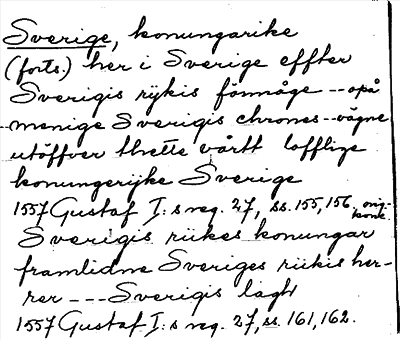 Sverige, konungarike
(forts.) her i Sverige effter
Sverigis rijkis förmåge -- opå
menige Sverigis chrones -- vägne
utöffver thette vårtt lofflige
konungerijke Sverige
1557 Gustaf I:s reg. 27, ss. 155, 156. orig.
konc.
Sverigis riikes konungar
framlidne Sveriges riikis her-
rer --- Sverigis lagh
1557 Gustaf I:s reg. 27, ss. 161, 162.